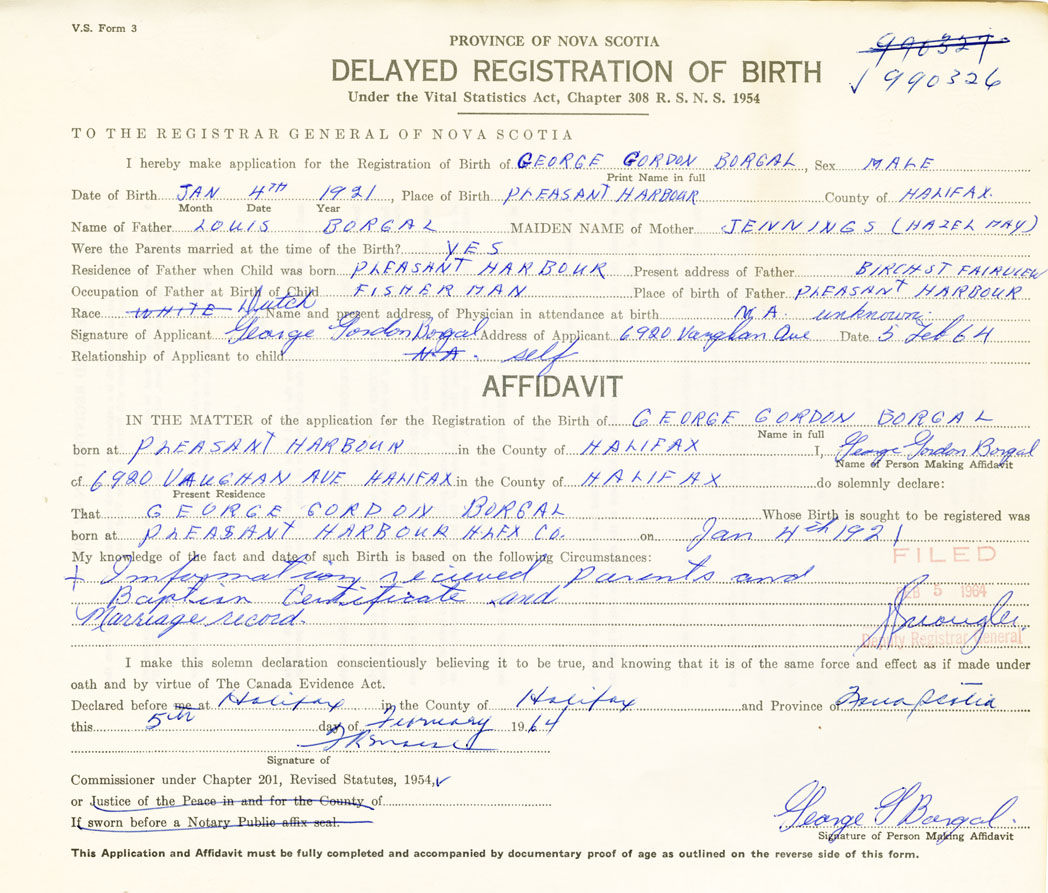 V.S. Form 3
990327
PROVINCE OF NOVA SCOTIA
√ 990326
DELAYED REGISTRATION OF BIRTH
Under the Vital Statistics Act, Chapter 308 R. S. N. S. 1954
TO THE REGISTRAR GENERAL OF NOVA SCOTIA
I hereby make application for the Registration of Birth of GEORGE GORDON BORGAL, Sex MALE
Print Name in full
Date of Birth JAN 4TH 1921, Place of Birth PLEASANT HARBOUR County of HALIFAX.
Month Date Year
Name of Father LOUIS BORGAL MAIDEN NAME of Mother JENNINGS (HAZEL MAY)
Were the Parents married at the time of the Birth? YES
Residence of Father when Child was born PLEASANT HARBOUR Present address of Father BIRCH ST FAIRVIEW
Occupation of Father at Birth of Child FISHERMAN Place of birth of Father PLEASANT HARBOUR
Race WHITE Dutch Name and present address of Physician in attendance at birth N.A. unknown.
Signature of Applicant George Gordon Borgal Address of Applicant 6920 Vaughan Ave Date 5 Feb 64
Relationship of Applicant to child N.A. self
AFFIDAVIT
IN THE MATTER of the application for the Registration of the Birth of GEORGE GORDON BORGAL
Name in full
born at PLEASANT HARBOUR in the County of HALIFAX I, George Gordon Borgal
Name of Person Making Affidavit
of 6920 VAUGHAN AVE HALIFAX in the County of HALIFAX do solemnly declare:
Present Residence
That GEORGE GORDON BORGAL Whose Birth is sought to be registered was
born at PLEASANT HARBOUR HLFX CO. on Jan 4th 1921
My knowledge of the fact and date of such Birth is based on the following Circumstances:
FILED
+ Information recieved parents and
Baptism Certificate and
FEB 5 1964
Marriage record.
Deputy Registrar General
I make this solemn declaration conscientiously believing it to be true, and knowing that it is of the same force and effect as if made under
oath and by virtue of The Canada Evidence Act.
Declared before me at Halifax in the County of Halifax and Province of Nova Scotia
this 5th day of February 1964
Signature of
Commissioner under Chapter 201, Revised Statutes, 1954, √
or Justice of the Peace in and for the County of
If sworn before a Notary Public affix seal.
George G Borgal.
Signature of Person Making Affidavit
This Application and Affidavit must be fully completed and accompanied by documentary proof of age as outlined on the reverse side of this form.